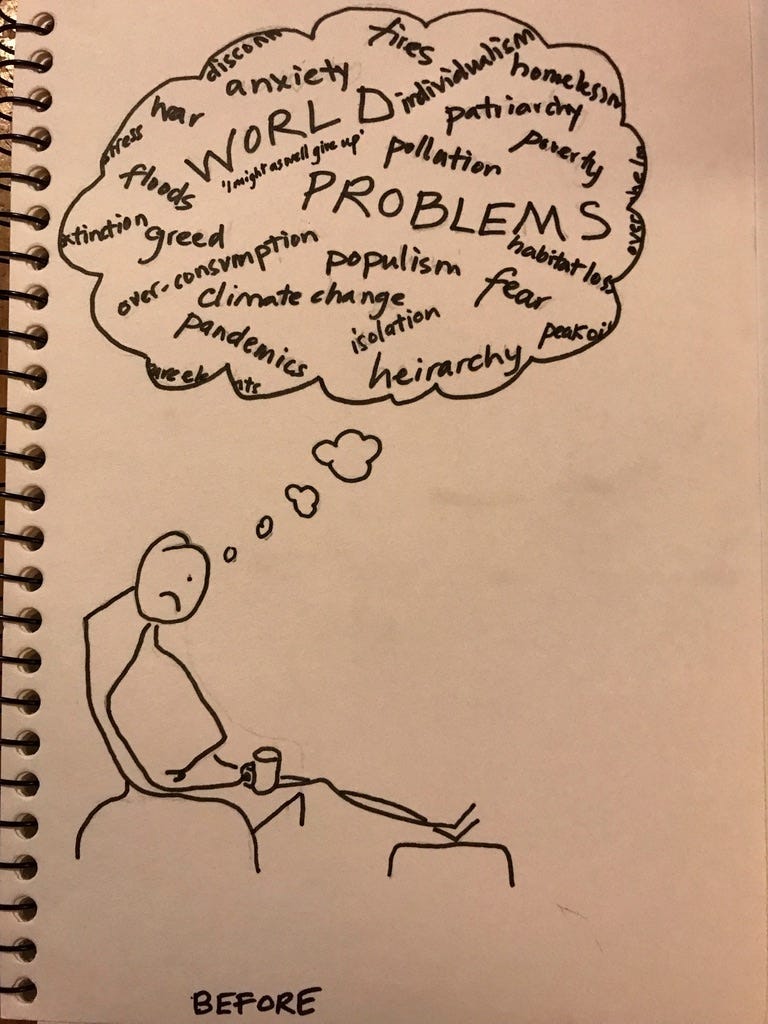 disconn
fires
individualism
homelessn
anxiety
patriarchy
poverty
overwhelm
war
stress
WORLD
'I might as well give up'
pollution
floods
PROBLEMS
xtinction
greed
habitat loss
over-consumption
populism
fear
climate change
pandemics
isolation
peak oi
heirarchy
nts
BEFORE